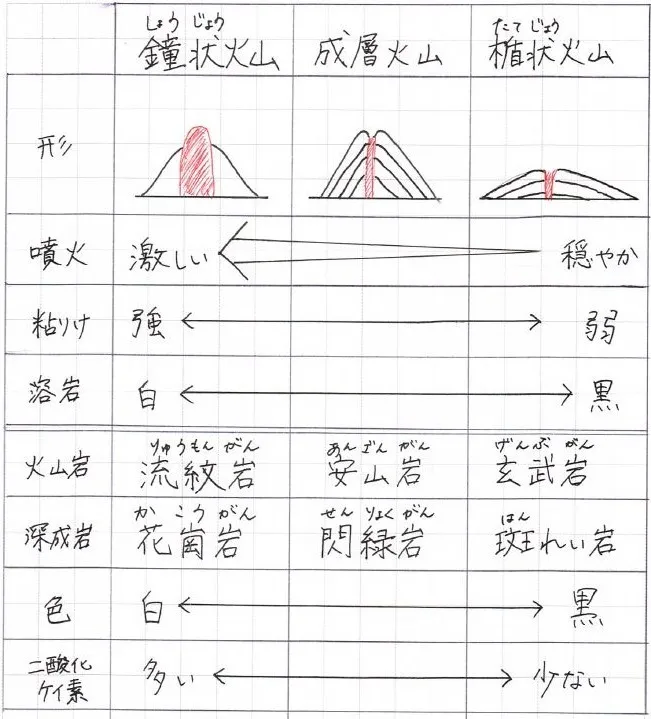 しょう じょう
鐘状火山
成層火山
たて じょう
楯状火山
形
噴火 激しい 穏やか
粘りけ 強 弱
溶岩 白 黒
りゅうもん がん
火山岩 流紋岩
あんざん がん
安山岩
げんぶ がん
玄武岩
か こう がん
深成岩 花崗岩
せん りょく がん
閃緑岩
はん
斑れい岩
色 白 黒
二酸化
ケイ素 多い 少ない